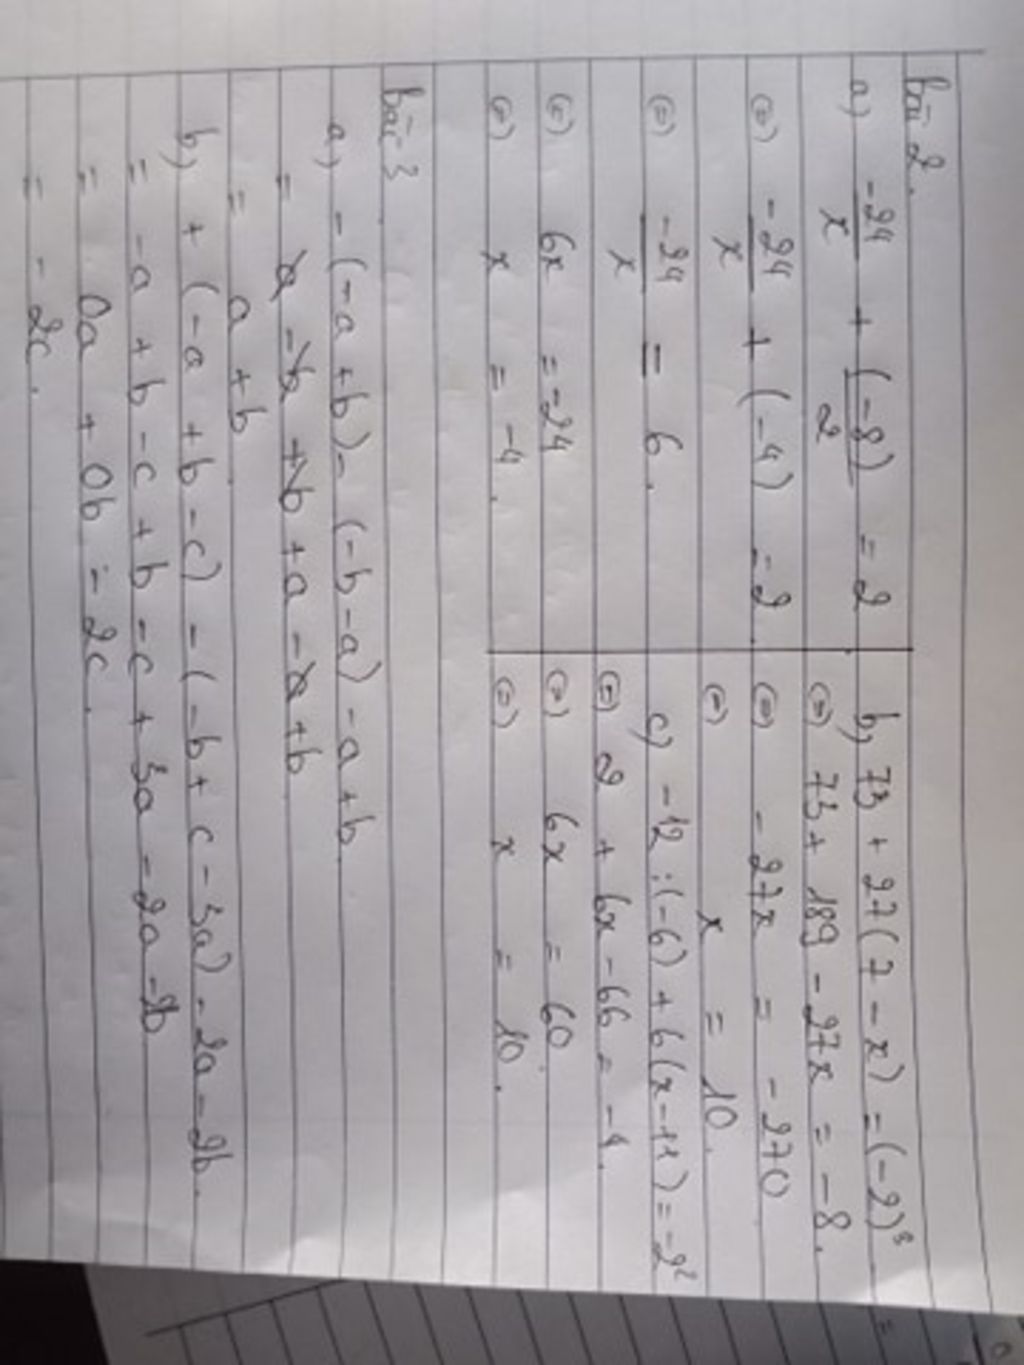 Bài 2.
a) -24/x + (-8)/2 = 2
(=) -24/x + (-4) = 2
(=) -24/x = 6.
(=) 6x = -24
(=) x = -4.
b) 73 + 27(7 - x) = (-2)³
(=) 73 + 189 - 27x = -8.
(=) -27x = -270
(=) x = 10.
c) -12 : (-6) + 6(x - 11) = -2²
(=) 2 + 6x - 66 = -4.
(=) 6x = 60
(=) x = 10.
Bài 3
a) - (-a + b) - (-b - a) - a + b
= a - b + b + a - a + b
= a + b
b) + (-a + b - c) - (-b + c - 3a) - 2a - 2b.
= -a + b - c + b - c + 3a - 2a - 2b
= 0a + 0b - 2c.
= - 2c.